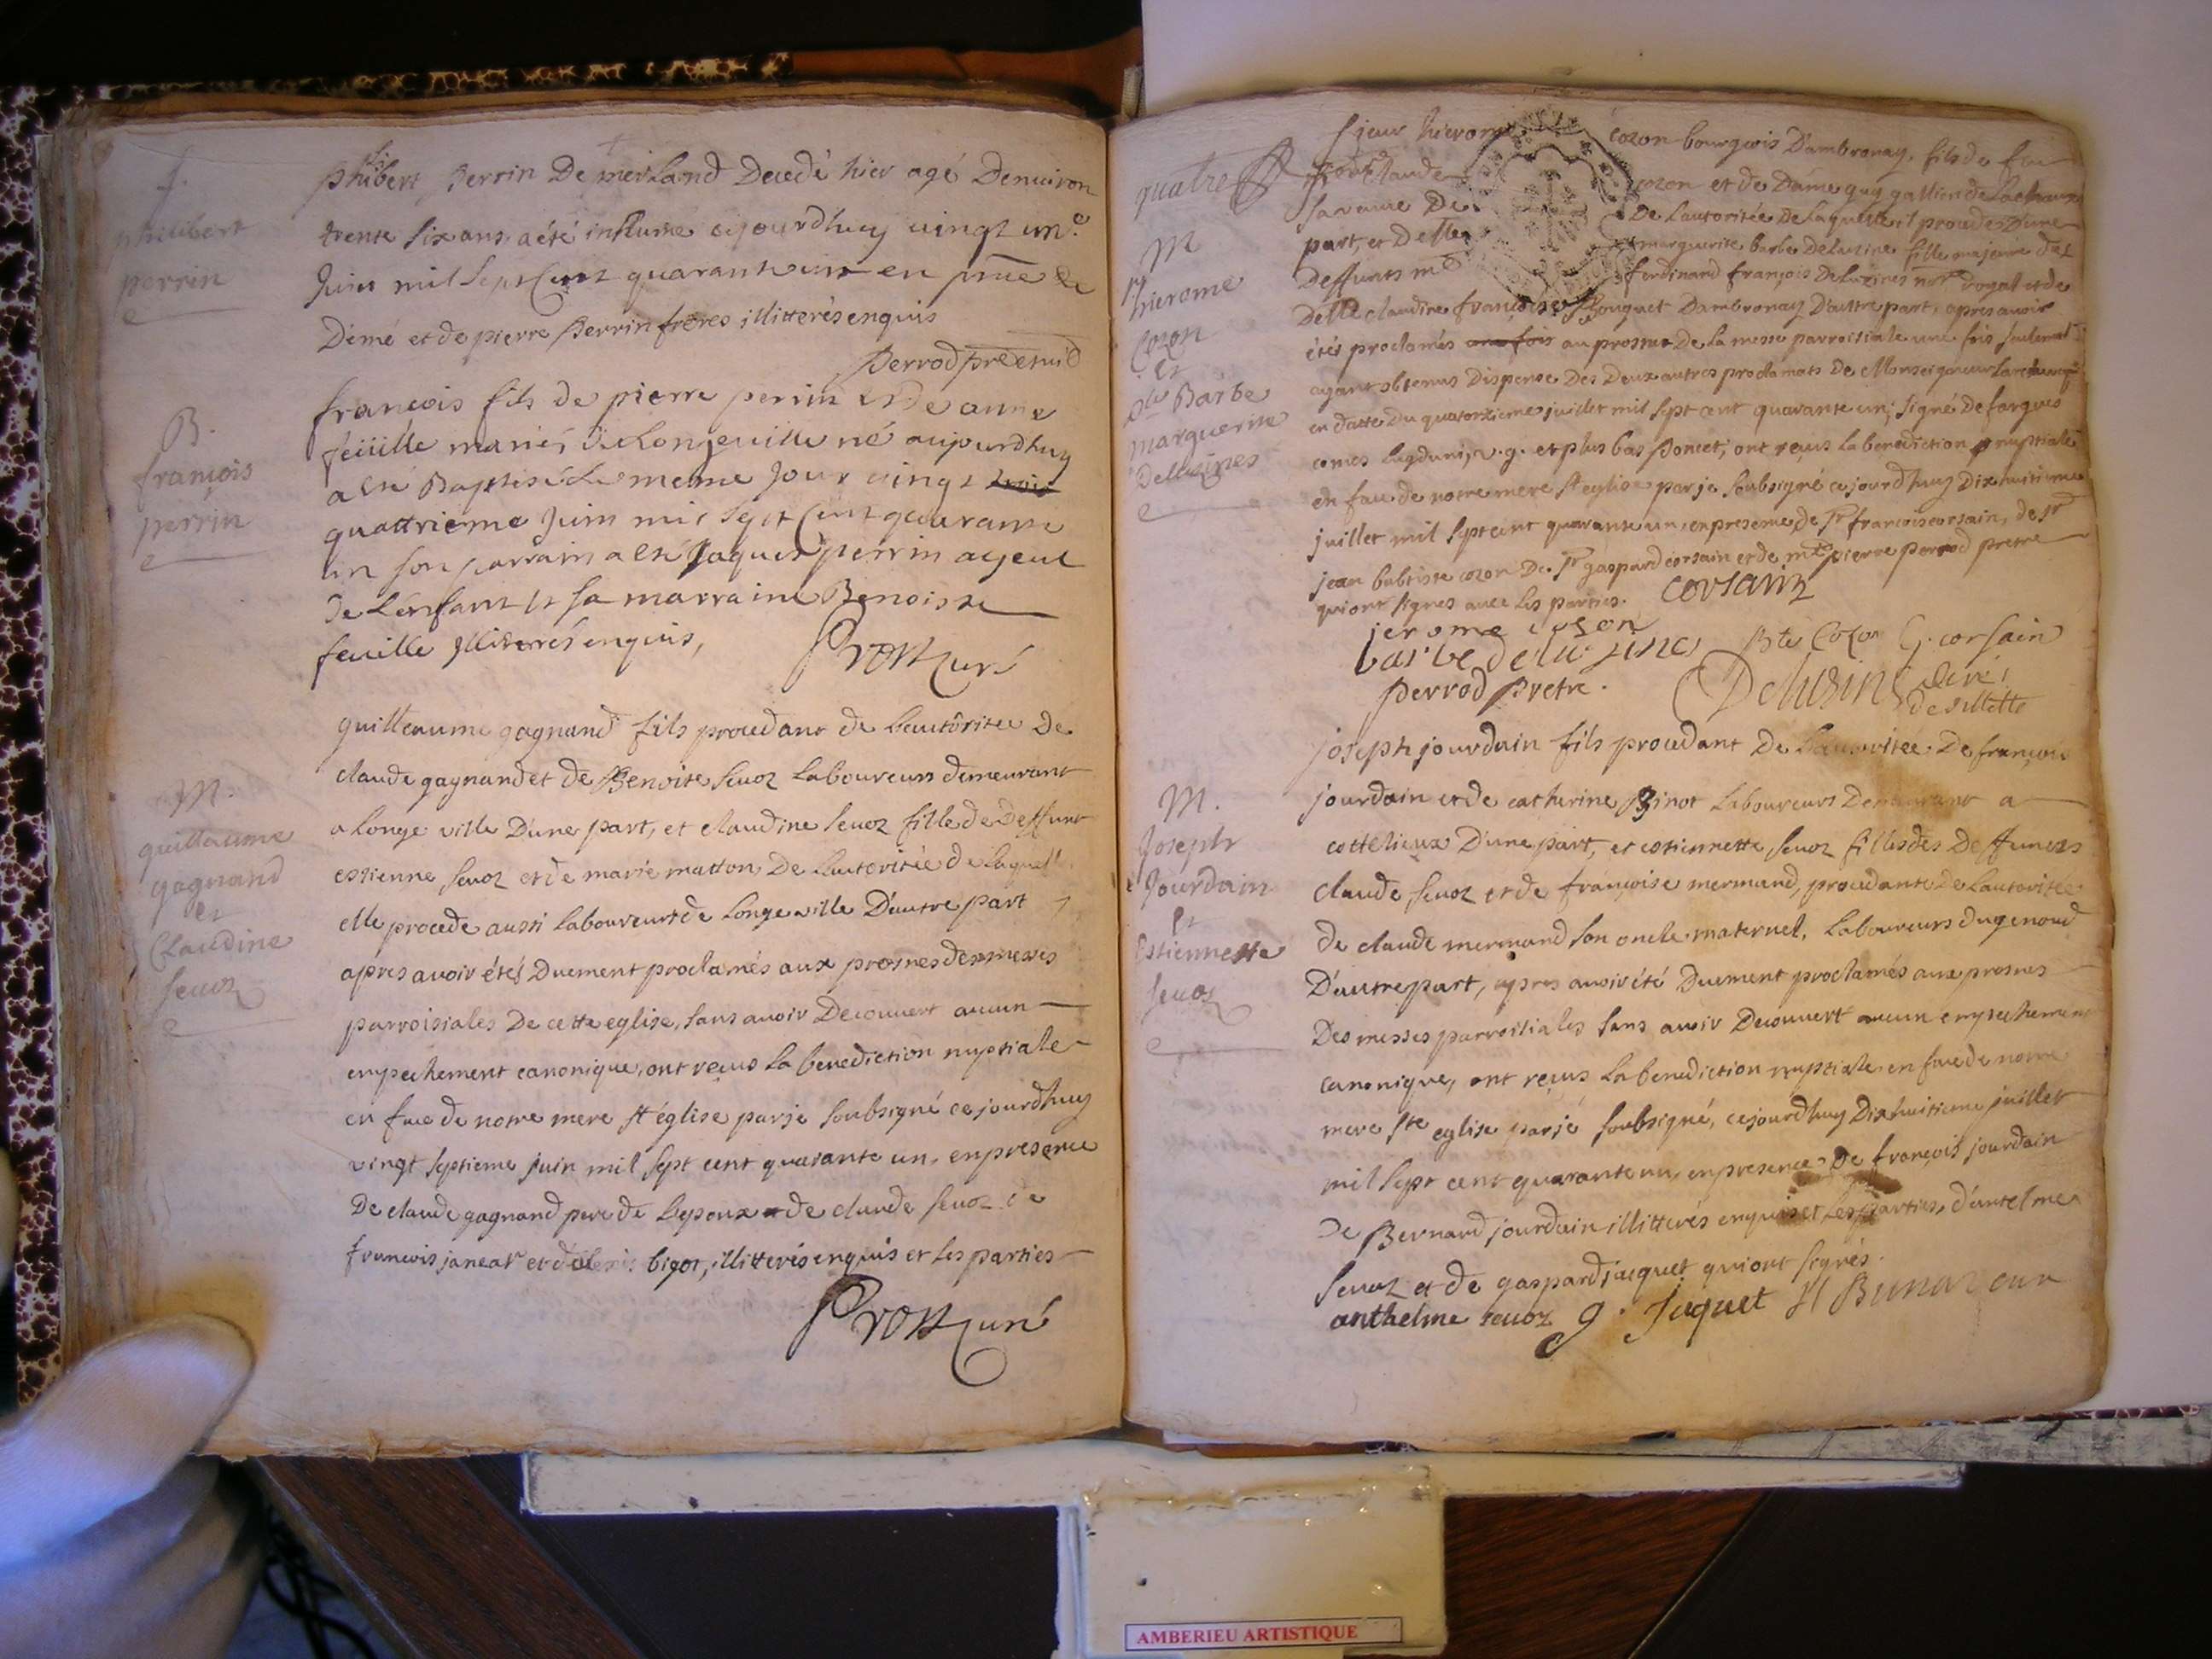 f.
philibert
perrin
philibert perrin De merland Decedé hier agé Denviron
trente six ans a été inhumé cejourdhuy vingt un.e
Juin mil sept Cent quarante un en pnce de
Démé et de pierre Perrin freres illitterés enquis
perrod pretre
B.
françois
perrin
francois fils de pierre perrin et De anne
feüille mariés de Longeville né aujourdhuy
a esté Baptisé le meme Jour vingt
quattrieme Juin mil sept Cent quarante
un son parrain a esté Jaques perrin ayeul
de Lenfant et sa marraine Benoiste
feuille illiterés enquis,
Prost curé
M.
guillaume
gagnand
et
Claudine
sevoz
guilleaume gagnand fils procedant de Lautôritée De
claude gagnand et de Benoite sevoz Laboureurs demeurant
a Longe ville D'une part, et claudine sevoz fille de Deffunt
estienne sevoz et de marie matton, De Lautoritée de Laquelle
elle procede aussi Laboureurs de Longe ville D'autre part
apres avoir étés Duement proclamés aux prosnes des messes
parroisiales De cette eglise, sans avoir Decouvert aucun
empechement canonique, ont reçus La benediction nuptiale
en face de notre mere st église par je soubsigné ce jourdhuy
vingt septieme juin mil sept cent quarante un, en presence
De claude gagnand pere de Lepoux et de claude sevoz de
francois janeat et d'alexis bigot, illitterés enquis et les parties
Prost curé
quatre
M
sr
hierome
Cozon
et
Dlle Barbe
marguerite
Delluzines
sieur hierome cozon bourgeois Dambronay, fils de feu
sr Claude cozon et de Dame guy gallien de Lachaux
sa veuve De De Lautoritée De Laquelle il procede D'une
part, et Delle marguerite barbe Deluzine fille majeure des
Deffunts me ferdinand françois Deluzines nore royal et de
Delle claudine françoise Bouquet Dambronay D'auttre part, apres avoir
étés proclamés une fois au prosne De la messe parroissiale une fois seulement
ayant obtenus Dispense Des Deux autres proclamats De Monseigneur Larchevq
en datte Du quatorzieme juillet mil sept cent quarante un; signé De fargues
comes lugduni, v. g. et plus bas Poncet; ont reçus La benediction nuptiale
en face de notre mere st eglise par je soubsigné cejourdhuy Dixhuitieme
juillet mil sept cent quarante un, en presence de sr francois corsain, de sr
jean babtiste cozon De sr gaspard corsain et de mre pierre perrod pretre
qui ont signes avec Les parties. corsain
jerome cozon
barbe deluzines Bte Cozon G. corsain
perrod Pretre. Deluzines
M.
Joseph
Jourdain
et
Estiennette
sevoz
joseph jourdain fils procedant De Lautoritée De françois
jourdain et de catherine Binot Laboureurs Demeurant a
cottelieux D'une part, et estiennette sevoz filles des Deffuncts
claude sevoz et de françoise mermand, procedante De Lautoritée
De claude mermand son oncle maternel, Laboureurs dugenoud
D'autre part, apres avoir été Duement proclamés aux prosnes
Des messes parroisiales sans avoir Decouvert aucun empechement
canonique, ont reçus La benediction nuptiale en face de notre
mere ste eglise par je soubsigné, cejourdhuy Dixhuitieme juillet
mil sept cent quarante un, en presence De françois jourdain
De Bernard jourdain illitterés enquis et Les parties, d'antelme
sevoz et de gaspard jacquet qui ont signés.
anthelme sevoz g. Jaquet
AMBERIEU ARTISTIQUE